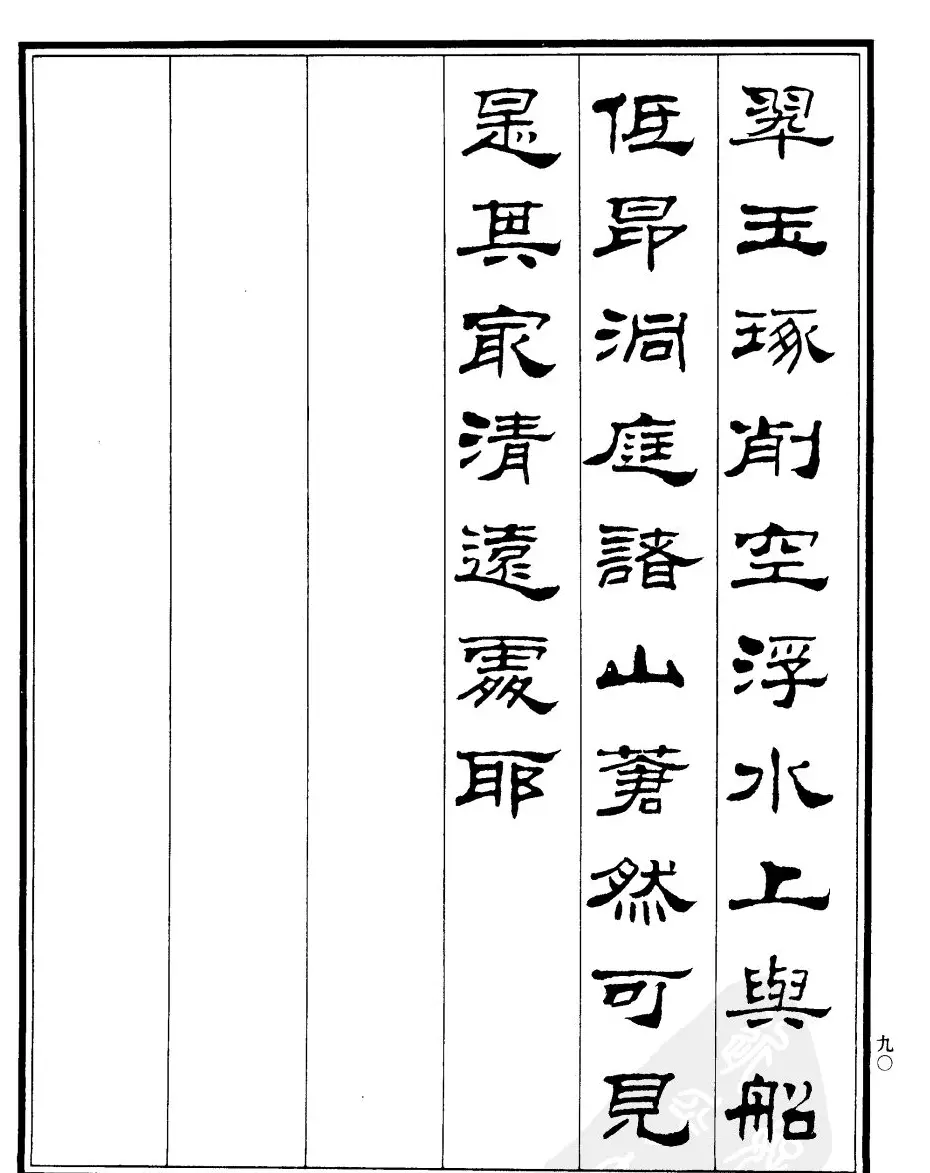 翠玉琢削空浮水上與船
低昂洞庭諸山蒼然可見
是其最清遠處耶
九〇